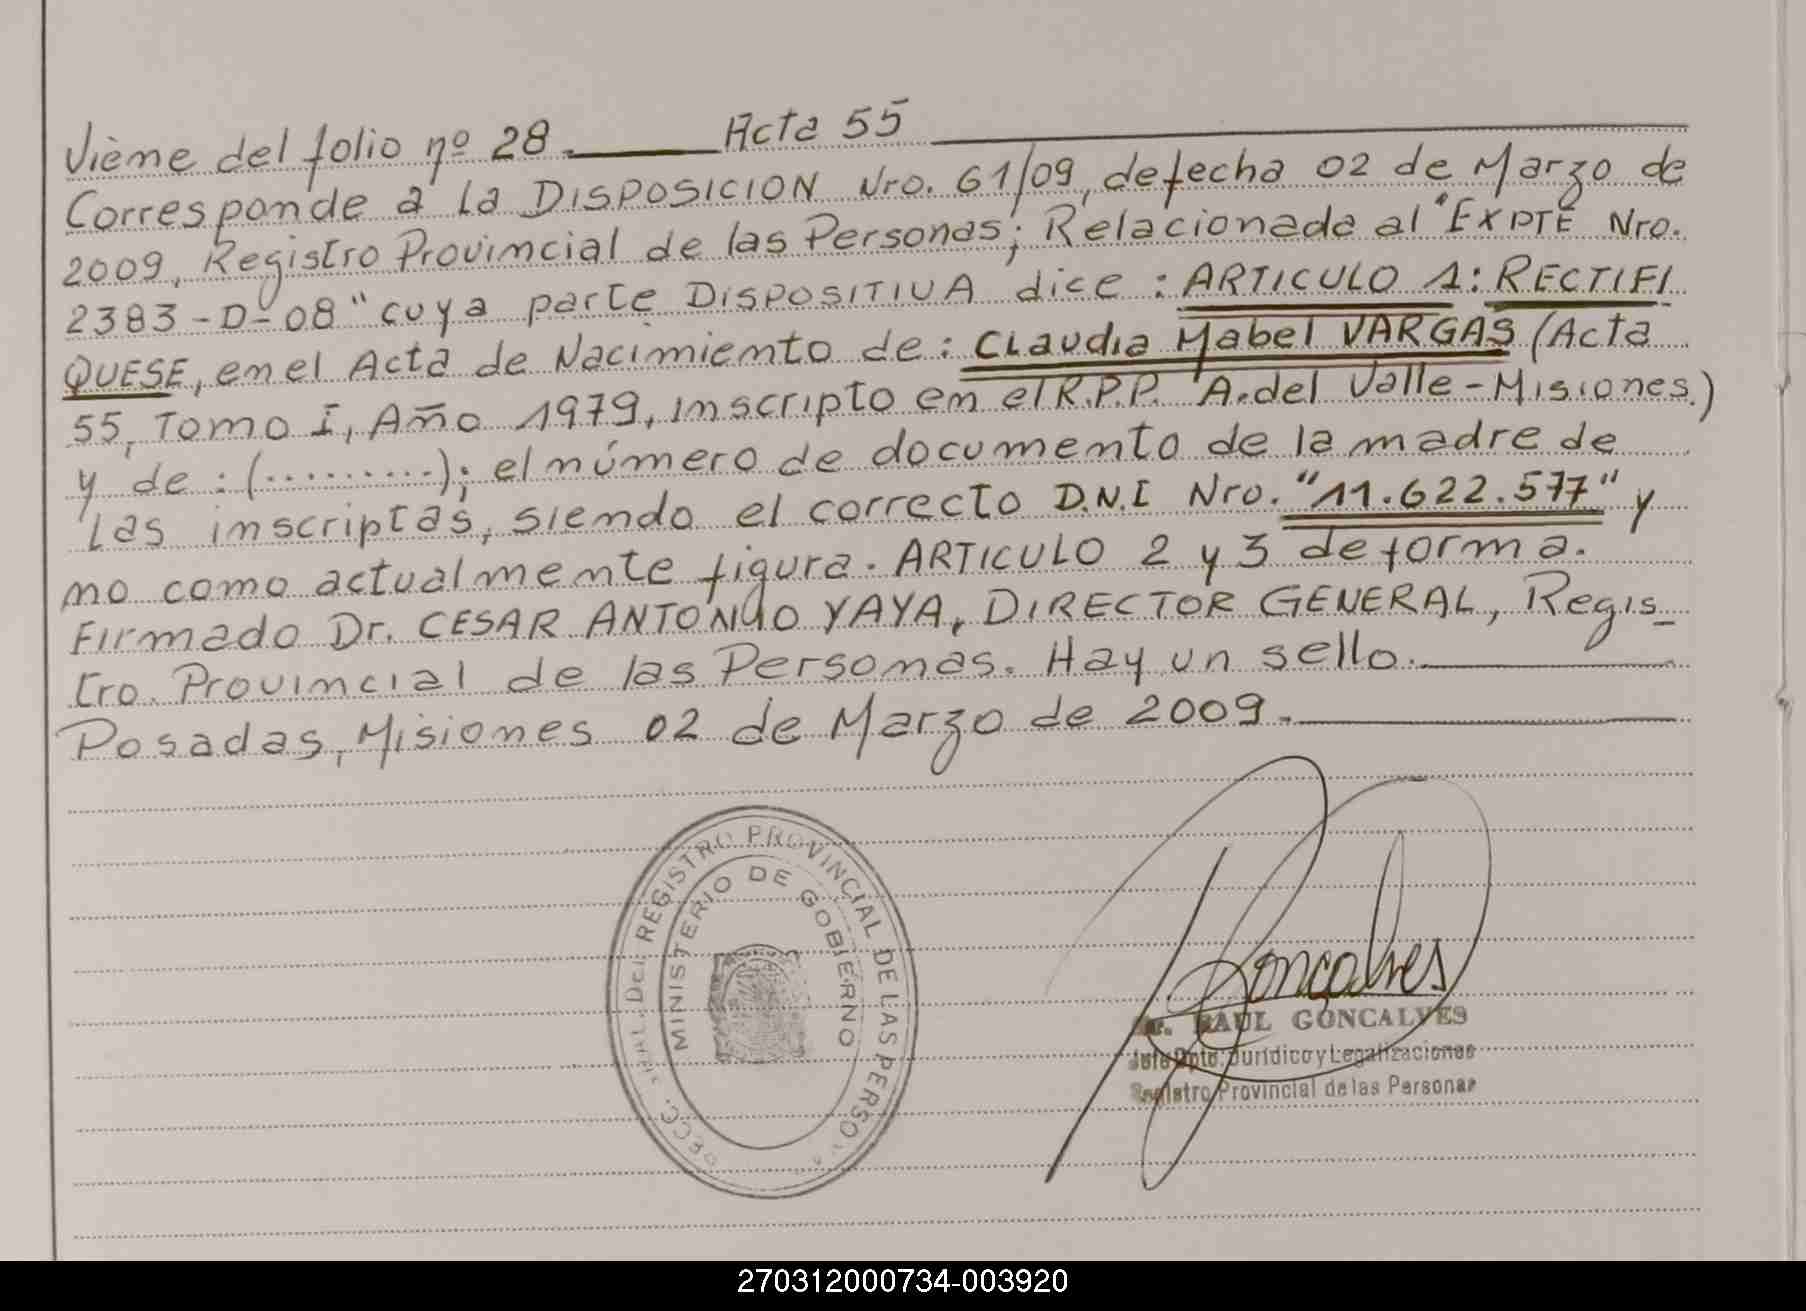 Viene del folio nº 28. Acta 55
Corresponde a la DISPOSICION Nro. 61/09, de fecha 02 de Marzo de
2009, Registro Provincial de las Personas; Relacionada al "EXPTE Nro.
2383-D-08" cuya parte DISPOSITIVA dice: ARTICULO 1: RECTIFI
QUESE, en el Acta de Nacimiento de: CLaudia Mabel VARGAS (Acta
55, Tomo I, Año 1979, inscripto en el R.P.P. A. del Valle-Misiones.)
y de: (.........); el número de documento de la madre de
las inscriptas, siendo el correcto D.N.I Nro. "11.622.577" y
no como actualmente figura. ARTICULO 2 y 3 de forma.
Firmado Dr. CESAR ANTONIO YAYA, DIRECTOR GENERAL, Regis_
tro. Provincial de las Personas. Hay un sello.
Posadas, Misiones 02 de Marzo de 2009.
REGISTRO PROVINCIAL DE LAS PERSO
MINISTERIO DE GOBIERNO
Goncalves
RAUL GONCALVES
Jefe Dpto. Juridico y Legalizaciones
Registro Provincial de las Personas
270312000734-003920